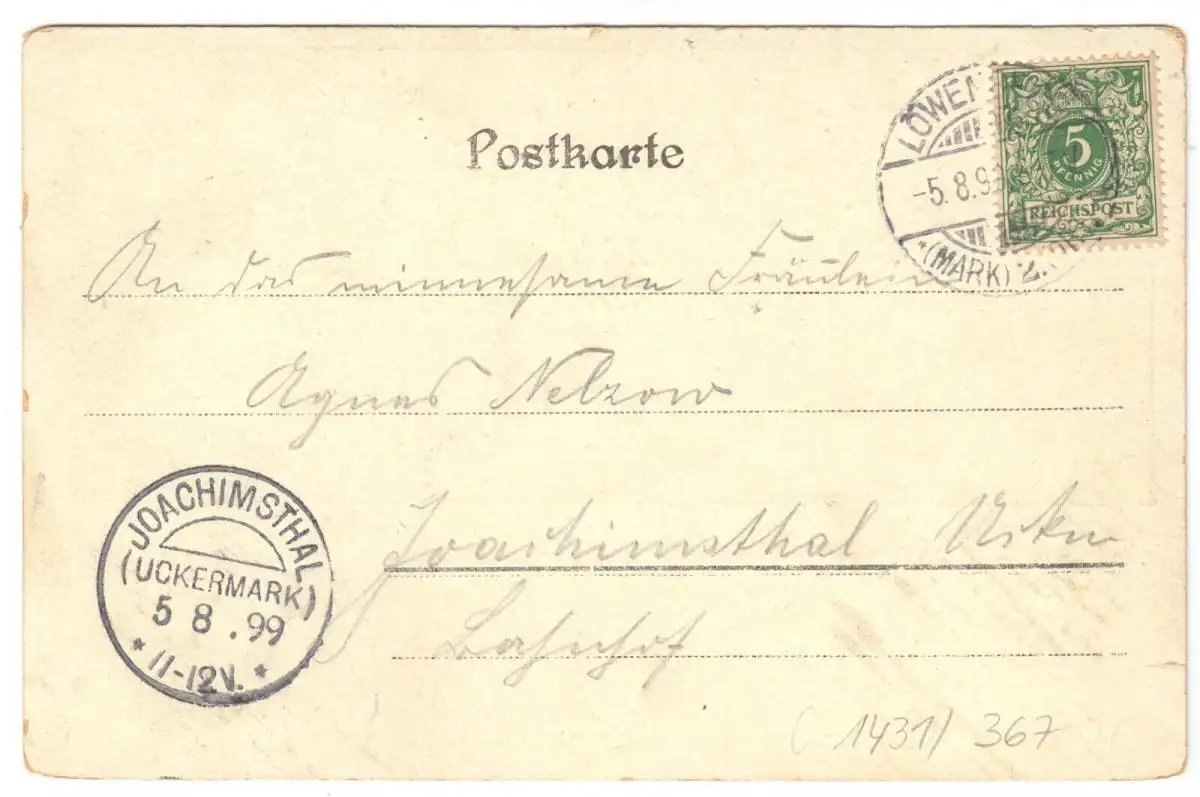 Postkarte
LÖWEN
-5.8.9
*(MARK) 2.
5
PFENNIG
REICHSPOST
An das minnesame Fräulein
Agnes Nelzow
JOACHIMSTHAL
(UCKERMARK)
5 8 . 99
* 11-12V. *
Joachimsthal Uckm
Bahnhof
(1431/ 367